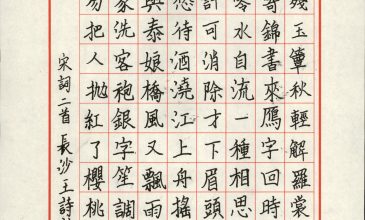 殘玉簟秋輕解羅裳
寄錦書來鴈字回時
零水自流一種相思
計可消除才下眉頭
愁待酒澆江上舟搖
與泰娘橋風又飄雨
家洗客袍銀字笙調
易把人拋紅了櫻桃
宋詞二首長沙王詩